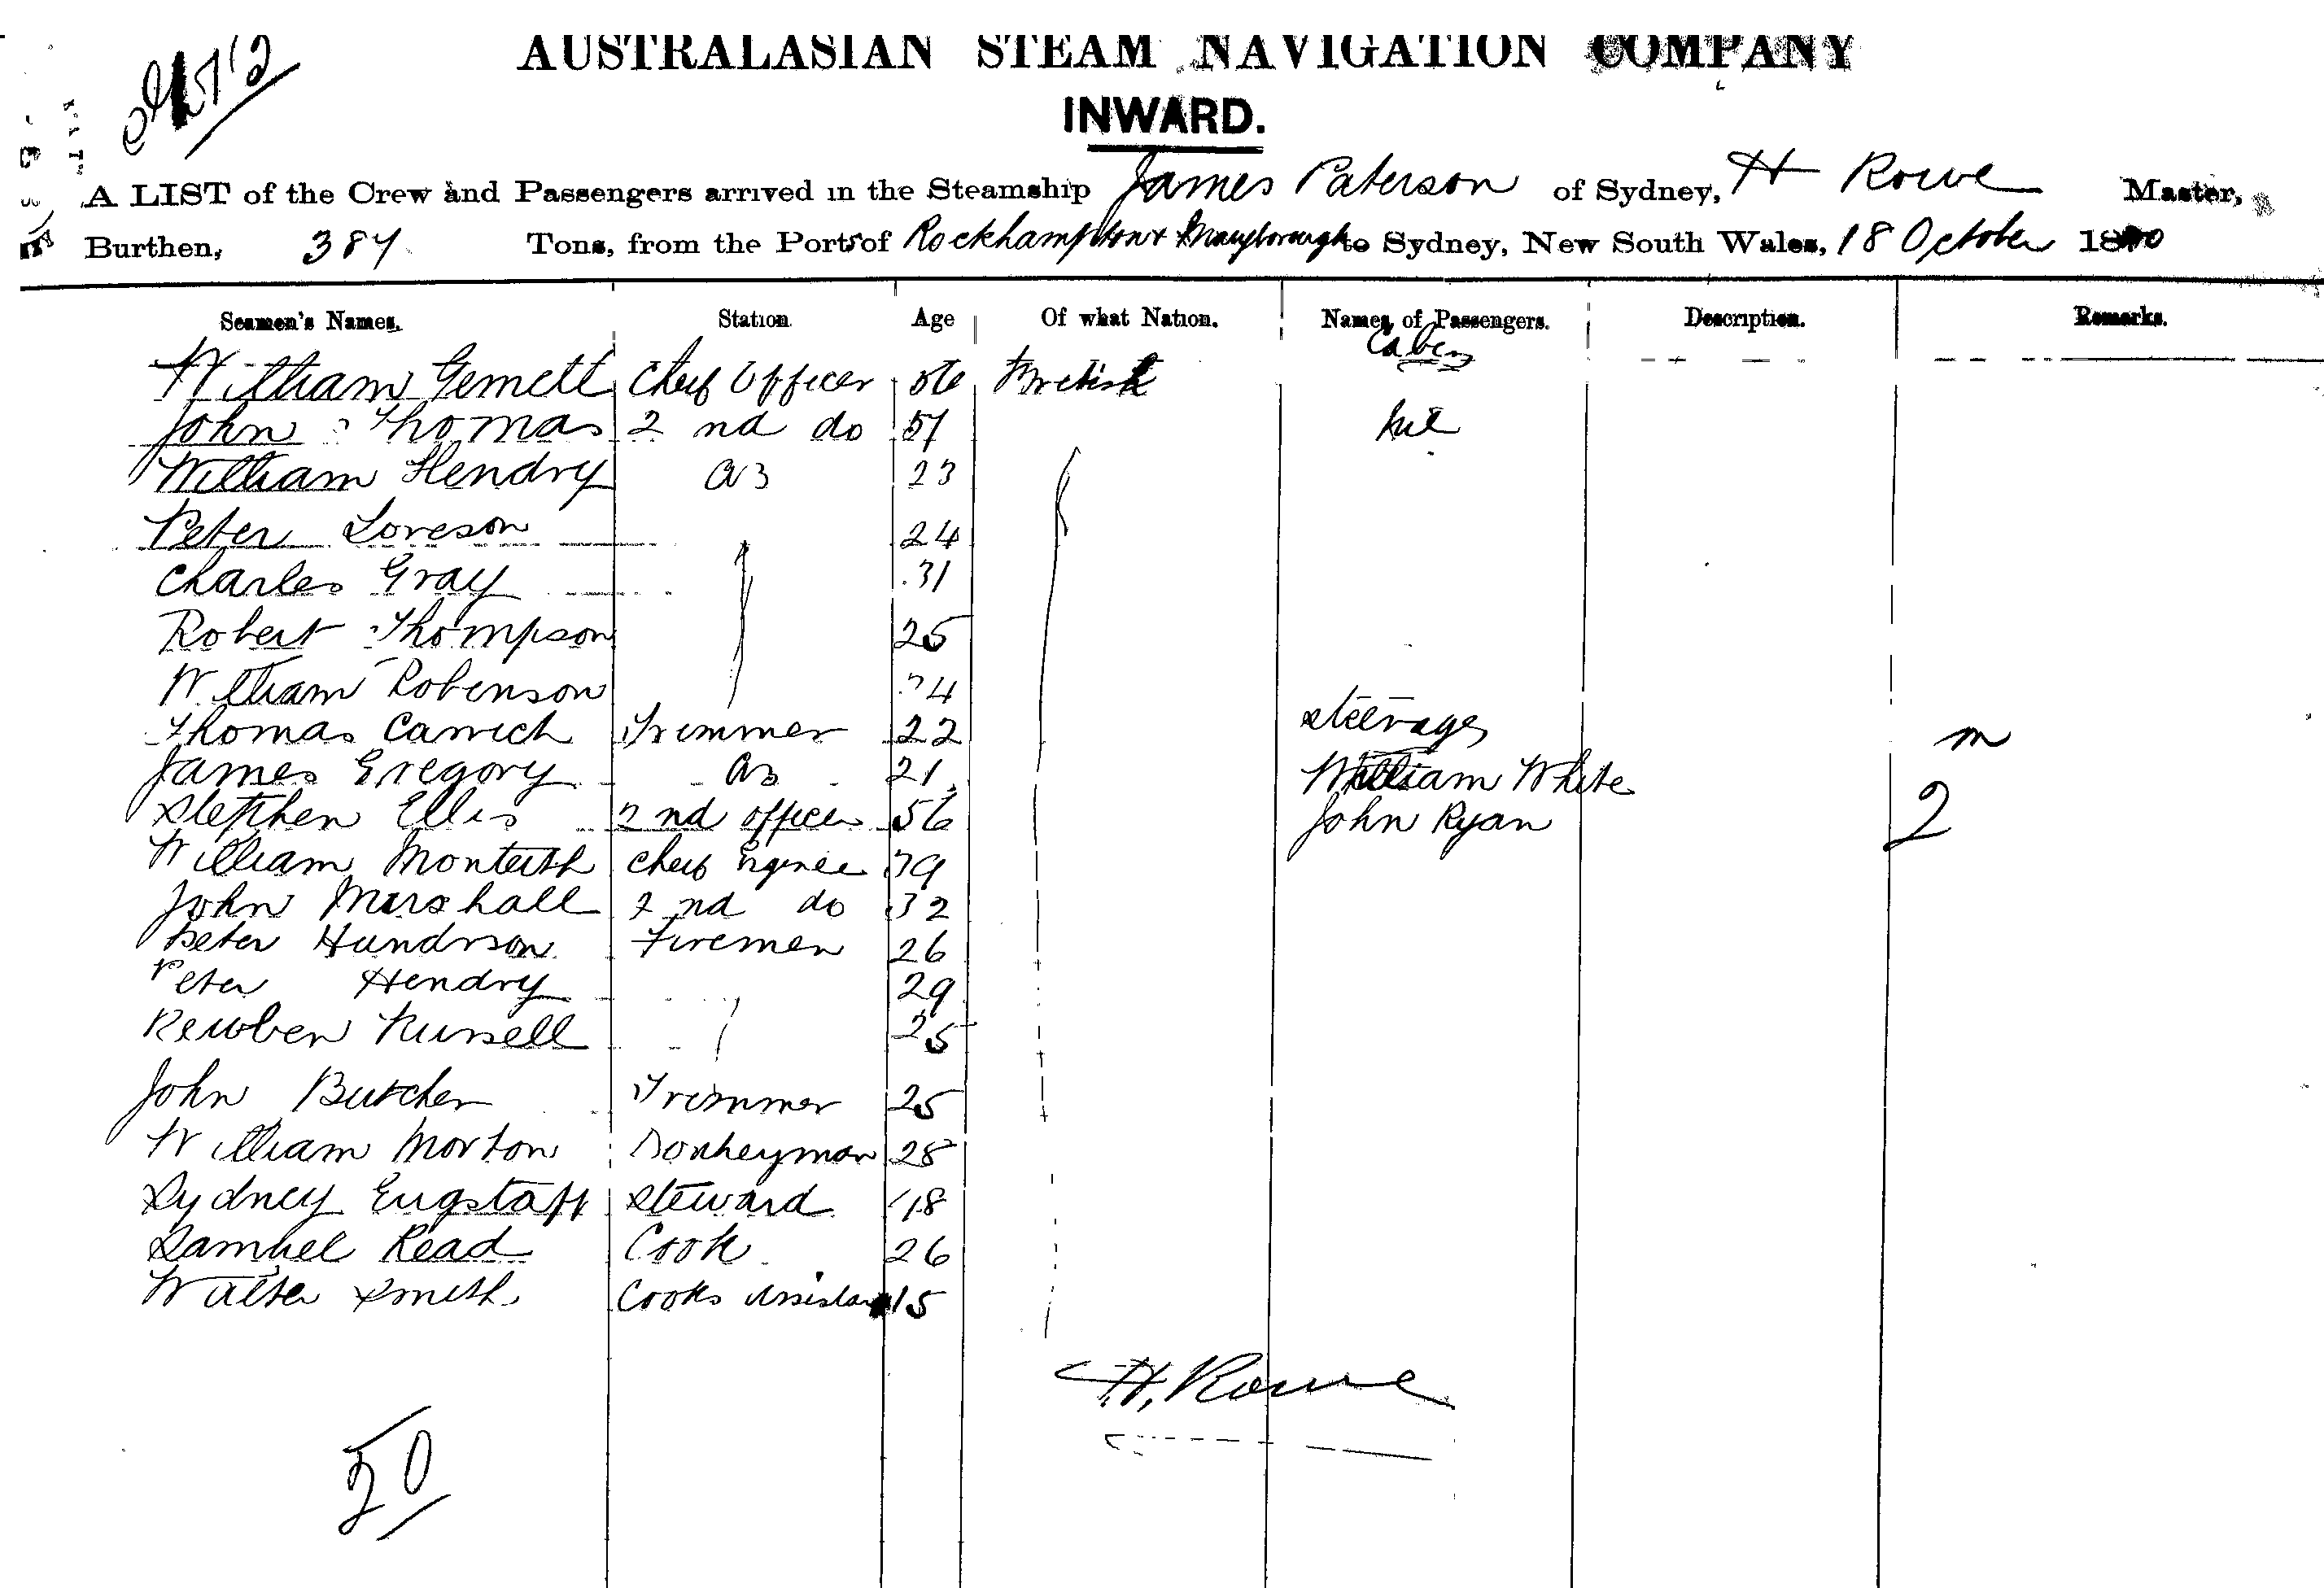 AUSTRALASIAN STEAM NAVIGATION COMPANY
INWARD.
A LIST of the Crew and Passengers arrived in the Steamship James Paterson of Sydney, H Rowe Master,
Burthen, 384 Tons, from the Ports of Rockhampton & Maryborough to Sydney, New South Wales, 18 October 18
Seamen's Names. Station Age Of what Nation. Names of Passengers. Description. Remarks.
Cabin
William Chief Officer 56 British
John Thomas 2nd do 51 nil
William Hendry AB 23
Peter Loveson 24
Charles Gray 31
Robert Thompson 25
William Robenson 24
steerage
Thomas Carrich Trimmer 22 m
James Gregory AB 21 William White
Stephen Ellis 2nd officer 56 John Ryan 2
William Monteith Chief 39
John Marshall 2nd do 32
Peter Hundrson Firemen 26
Peter Hendry 29
Reuben Russell 25
John Butcher Trimmer 25
William Morton Donkeyman 28
Sydney Steward 18
Samuel Read Cook 26
Walter Smith Cooks Assistant 15
H. Rowe
20